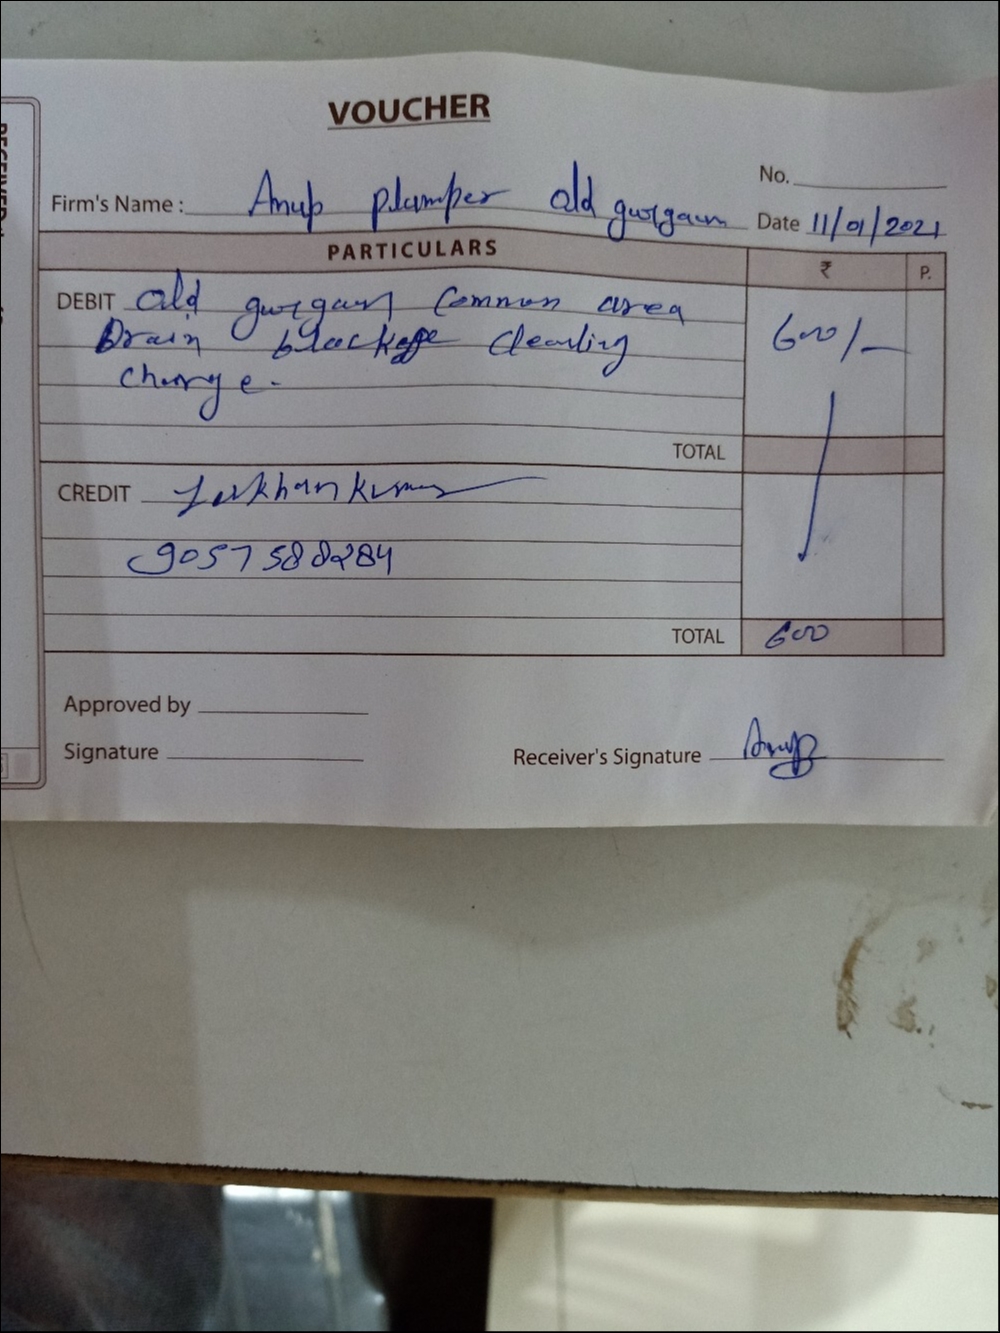 VOUCHER
No.
Firm's Name : Anup plumper old gurgaum Date 11/01/2021
PARTICULARS ₹ P.
DEBIT old gurgaum Common area 600/-
Drain blockage cleanling
charge.
TOTAL
CREDIT Lekhan Kumar
9057588284
TOTAL 600
Approved by
Signature
Receiver's Signature Anup